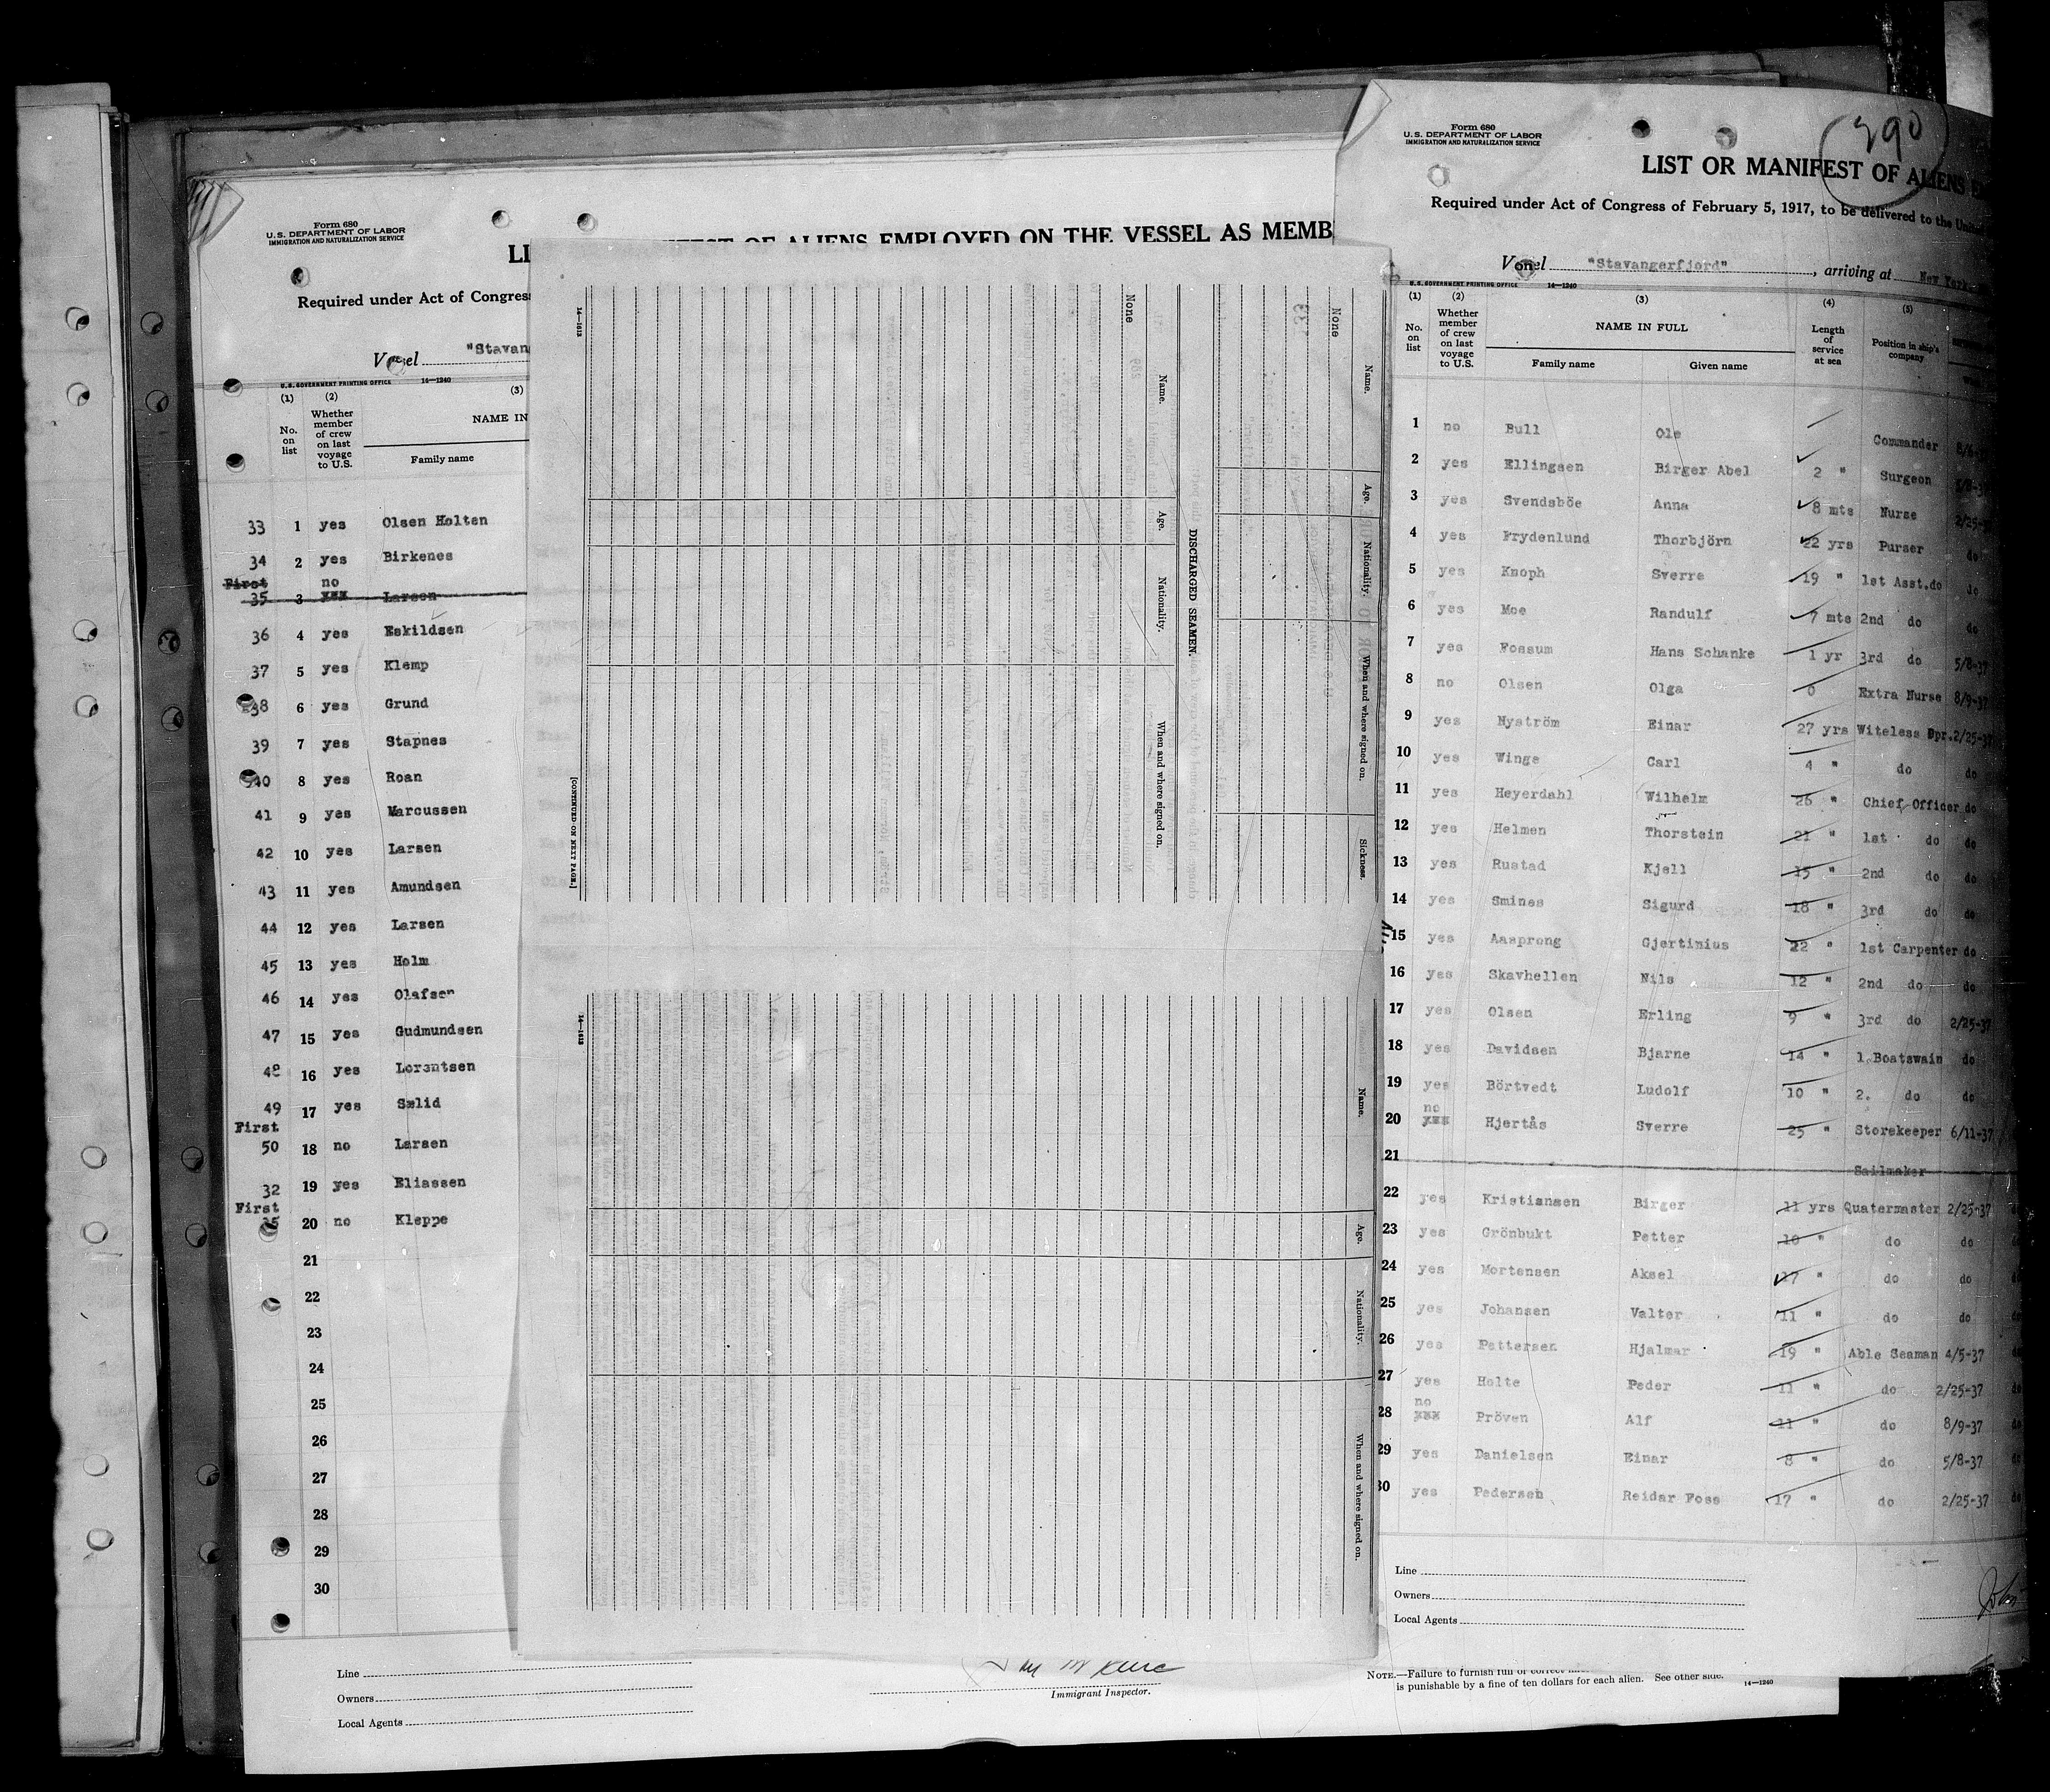 Form 680
U. S. DEPARTMENT OF LABOR
IMMIGRATION AND NATURALIZATION SERVICE
OF ALIENS EMPLOYED ON THE VESSEL AS MEMB
Required under Act of Congress
Vessel "Stavang
U. S. GOVERNMENT PRINTING OFFICE 14—1240
(1) (2) (3)
No. on list
Whether member of crew on last voyage to U.S.
NAME IN
Family name
33 1 yes Olsen Holten
34 2 yes Birkenes
First no
35 3 xxx Larsen
36 4 yes Eskildsen
37 5 yes Klemp
38 6 yes Grund
39 7 yes Stapnes
40 8 yes Roan
41 9 yes Marcussen
42 10 yes Larsen
43 11 yes Amundsen
44 12 yes Larsen
45 13 yes Holm
46 14 yes Olafsen
47 15 yes Gudmundsen
48 16 yes Lorentsen
49 17 yes Sælid
First
50 18 no Larsen
32 19 yes Eliassen
First
35 20 no Kleppe
21
22
23
24
25
26
27
28
29
30
Line
Owners
Local Agents
Immigrant Inspector.
NOTE.—Failure to furnish full or correct
is punishable by a fine of ten dollars for each alien. See other side.
14—1240
14—1613
None
Name.
Age.
Nationality.
When and where signed on.
[CONTINUED ON NEXT PAGE.]
DISCHARGED SEAMEN.
33
None
Name.
Age.
Nationality.
When and where signed on.
Sickness.
14—1613
Name.
Age.
Nationality.
When and where signed on.
290
Form 680
U. S. DEPARTMENT OF LABOR
IMMIGRATION AND NATURALIZATION SERVICE
LIST OR MANIFEST OF ALIENS
Required under Act of Congress of February 5, 1917, to be delivered to the
Vessel "Stavangerfjord", arriving at New York
U. S. GOVERNMENT PRINTING OFFICE 14—1240
(1) (2) (3) (4) (5)
No. on list
Whether member of crew on last voyage to U.S.
NAME IN FULL
Family name Given name
Length of service at sea
Position in ship's company
1 no Bull Ole Commander
2 yes Ellingsen Birger Abel 2 " Surgeon
3 yes Svendsböe Anna 8 mts Nurse 2/25-37
4 yes Frydenlund Thorbjörn 22 yrs Purser do
5 yes Knoph Sverre 19 " 1st Asst.do do
6 yes Moe Randulf 7 mts 2nd do do
7 yes Fossum Hans Schanke 1 yr 3rd do 5/8-37
8 no Olsen Olga 0 Extra Nurse 8/9-37
9 yes Nyström Einar 27 yrs Witeless Opr. 2/25-37
10 yes Winge Carl 4 " do do
11 yes Heyerdahl Wilhelm 26 " Chief Officer do
12 yes Helmen Thorstein 21 " 1st do do
13 yes Rustad Kjell 15 " 2nd do do
14 yes Smines Sigurd 18 " 3rd do do
15 yes Aasprong Gjertinius 22 " 1st Carpenter do
16 yes Skavhellen Nils 12 " 2nd do do
17 yes Olsen Erling 9 " 3rd do 2/25-37
18 yes Davidsen Bjarne 14 " 1.Boatswain do
19 yes Börtvedt Ludolf 10 " 2. do do
no
20 xxx Hjertås Sverre 25 " Storekeeper 6/11-37
21 Sailmaker
22 yes Kristiansen Birger 11 yrs Quatermaster 2/25-37 do
23 yes Grönbukt Petter 10 " do do do
24 yes Mortensen Aksel 17 " do do do
25 yes Johansen Valter 11 " do do do
26 yes Pettersen Hjalmar 19 " Able Seaman 4/5-37 do
27 yes Holte Peder 11 " do 2/25-37 do
no
28 xxx Pröven Alf 11 " do 8/9-37 do
29 yes Danielsen Einar 8 " do 5/8-37 do
30 yes Pedersen Reidar Foss 17 " do 2/25-37 do
Line
Owners
Local Agents